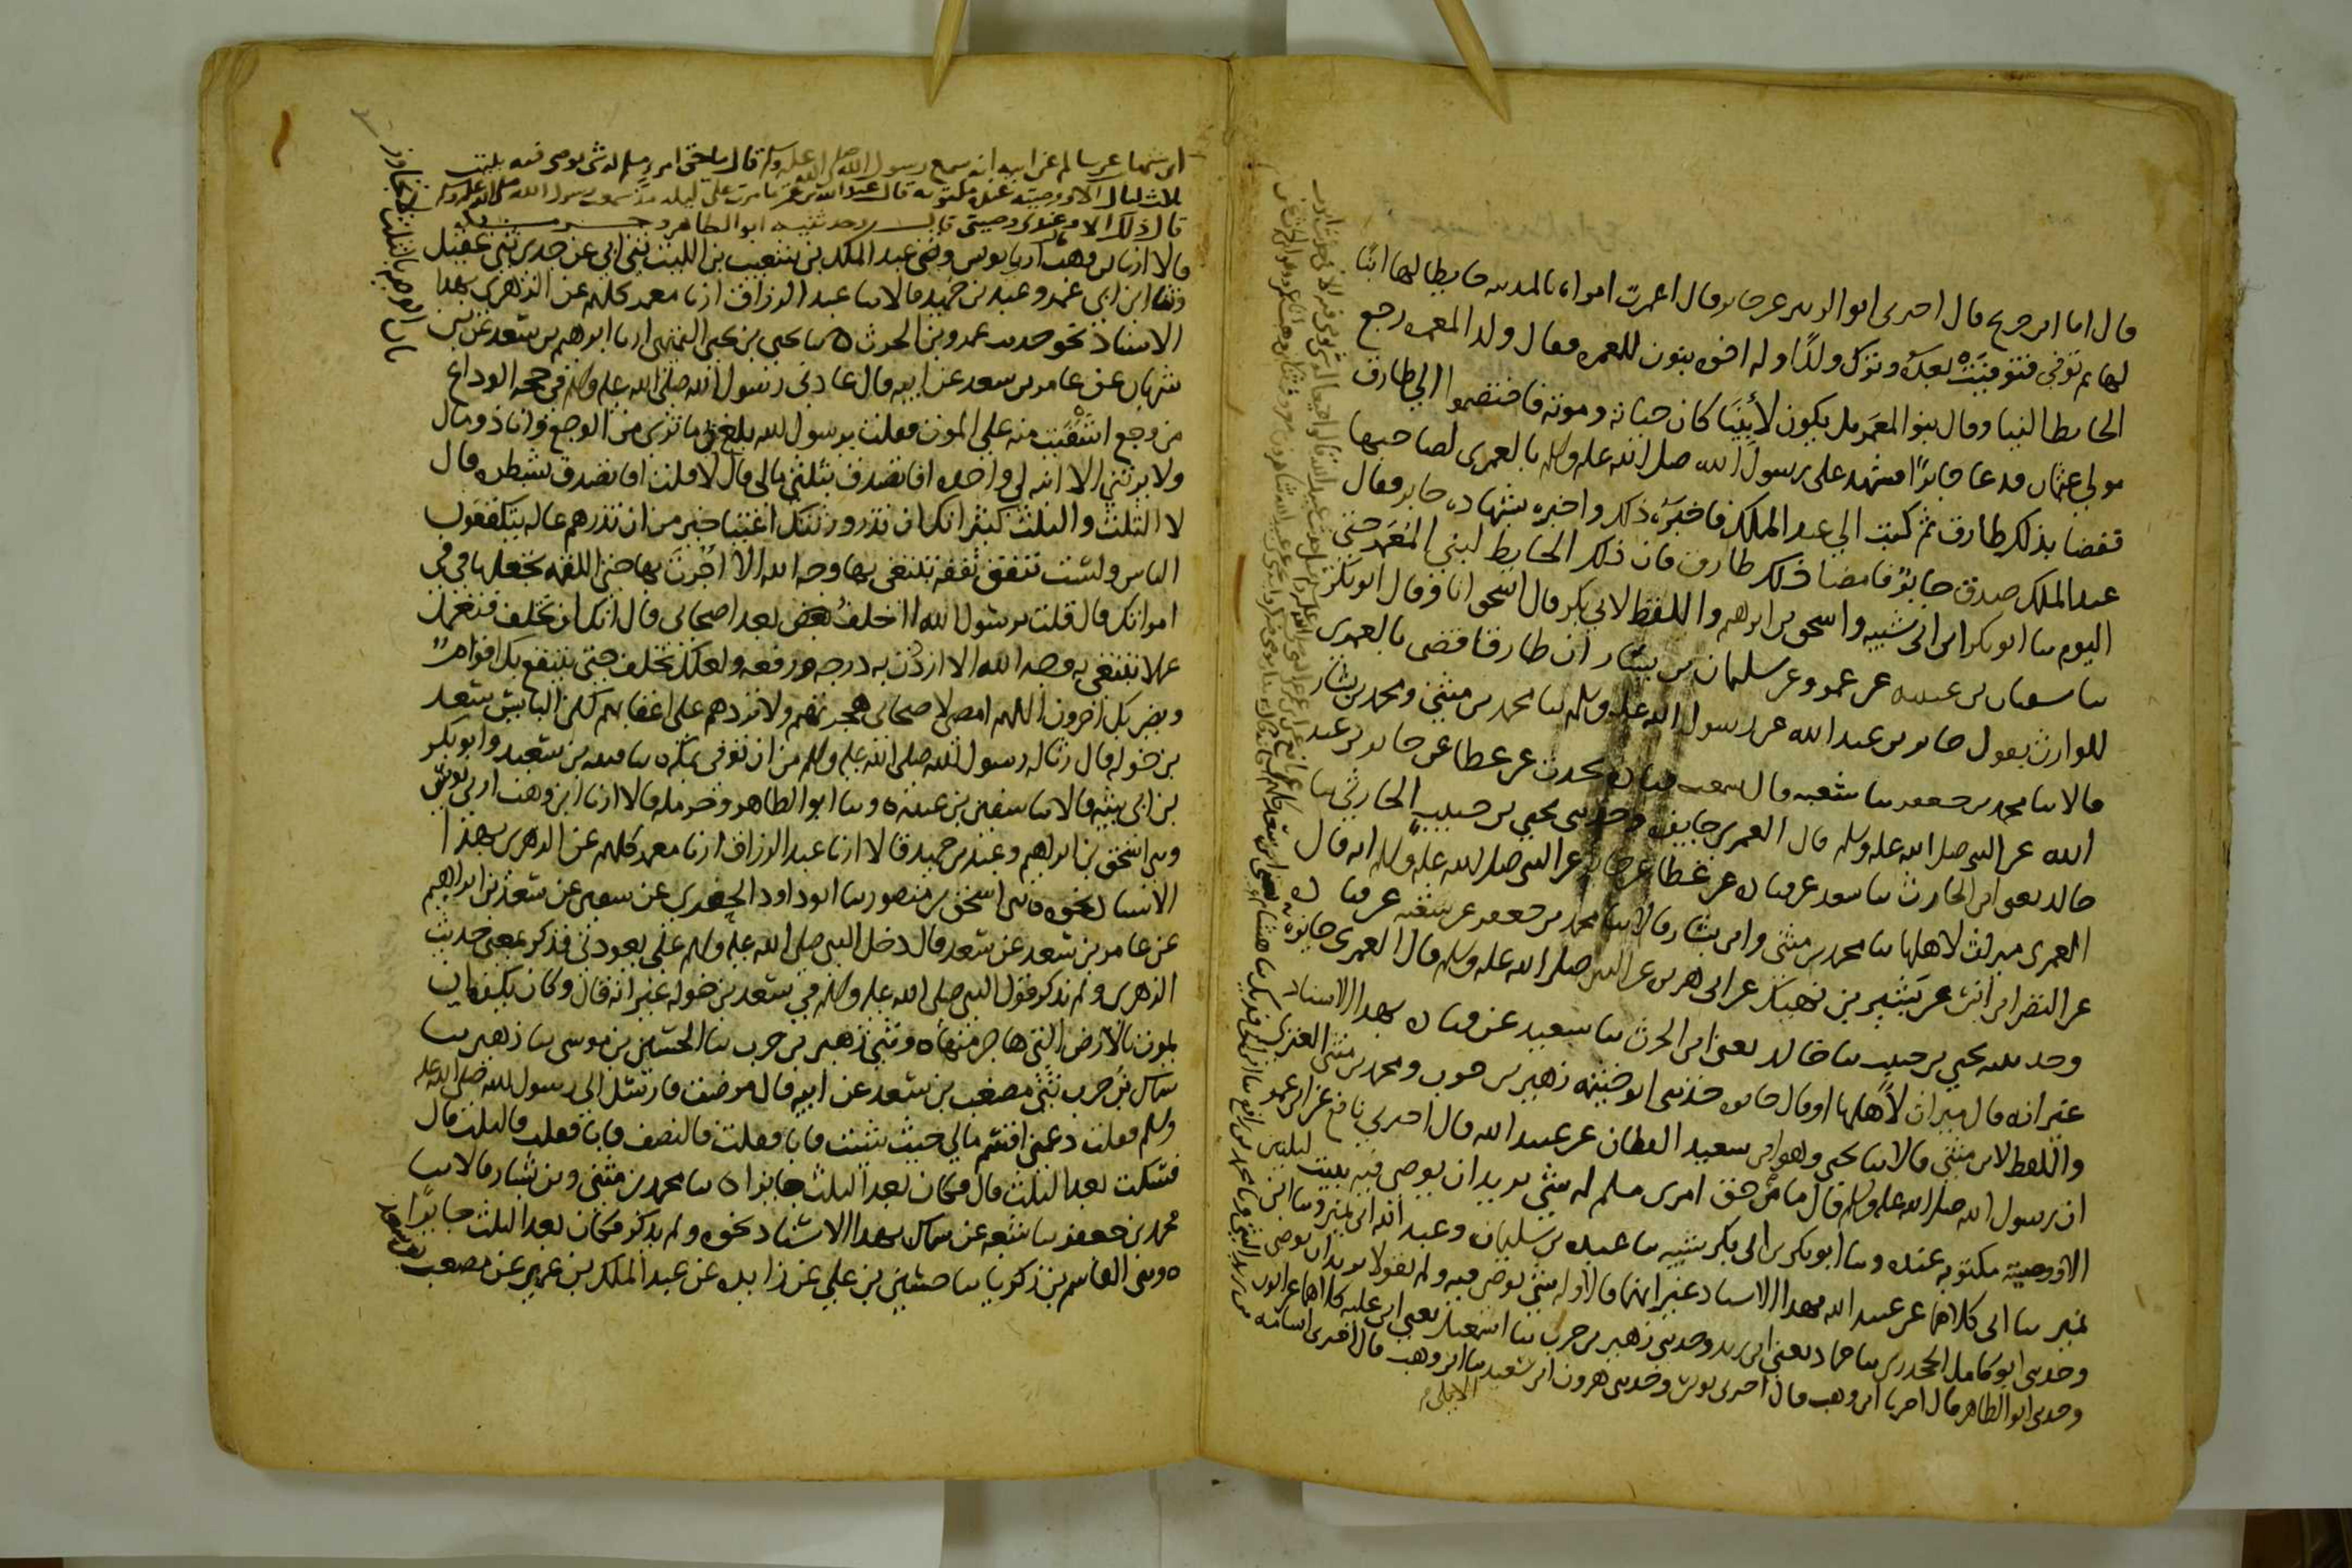 قال انا ابن جريج قال اخبرني ابو الزبير عن جابر قال اعمرت امراة بالمدينة حايطا لها ابنا
لها ثم توفي فتوفيت بعده وترك ولدًا وله اخوة بنون للمعمره فقال ولد المعمره رجع
الحايط الينا وقال بنو المعمر بل يكون لأبينا كان حياته وموته فاختصموا الي طارق
مولي عثمان فدعا جابرًا فشهد على رسول الله صلى الله عليه وسلم بالعمرى لصاحبها
فقضا بذلك طارق ثم كتب الي عبد الملك فاخبره ذلك واخبره بشهادة جابر فقال
عبد الملك صدق جابرٌ فامضا ذلك طارق فان ذلك الحايط لبني المعمر حتى
اليوم ىنا ابو بكر ابن ابي شيبه واسحق بن ابراهيم واللفظ لابي بكر قال اسحق انا وقال ابو بكر
ىنا سفيان بن عيينه عن عمرو عن سليمان بن يسار ان طارقا قضى بالعمري
للوارث بقول جابر بن عبد الله عن رسول الله صلى الله عليه وسلم ىنا محمد بن مثني ومحمد بن بشار
قالا ىنا محمد بن جعفر ىنا شعبه قال سمعت قتاده يحدث عن عطا عن جابر بن عبد
الله عن النبي صلى الله عليه وسلم قال العمري جايزه وحدىني يحيي بن حبيب الحارثي ىنا
خالد يعني ابن الحارث ىنا سعيد عن قتاده عن عطا عن جابر عن النبي صلى الله عليه وسلم انه قال
العمرى ميراث لاهلها ىنا محمد بن مثني وابن بشار قالا ىنا محمد بن جعفر عن شعبه عن قتاده
عن النضر ابن انس عن بشير بن نهيك عن ابي هريره عن النبي صلى الله عليه وسلم قال العمري جايزه
وحدىنيه يحيي بن حبيب ىنا خالد يعني ابن الحرث ىنا سعيد عن قتاده بهذا الاسناد
غير انه قال ميراث لأهلها او قال جايزه حدىني ابو خيثمه زهير بن حرب ومحمد بن مثني العنزي
واللفظ لابن مثني قالا ىنا يحيي وهو ابن سعيد القطان عن عبيد الله قال اخبرني نافع عن ابن عمر
ان رسول الله صلى الله عليه وسلم قال ما حق امرى مسلم له شي يريد ان يوصي فيه يبيت ليلتين
الا ووصيته مكتوبه عنده وىنا ابو بكر بن ابي شيبه ىنا عبده بن سليمان وعبد الله ابن نمير وىنا ابن
نمير ىنا ابي كلاهما عن عبيد الله بهذا الاسناد غير انهما قالا وله شي يوصي فيه ولم يقولا يريد ان يوصي
وحدىني ابو كامل الجحدري ىنا حماد يعني ابن زيد وحدىني زهير بن حرب ىنا اسمعيل يعني ابن عليه كلاهما عن ايوب
وحدىني ابو الطاهر قال اخبرنا ابن وهب قال اخبرني يونس وحدىني هرون ابن سعيد ىنا ابن وهب قال اخبرني اسامه
الايلي
ابن شهاب عن سالم عن ابيه انه سمع رسول الله صلى الله عليه وسلم قال ما حق امرى مسلم له شي يوصي فيه يبيت
ثلاث ليال الا ووصيته عنده مكتوبه قال عبد الله بن عمر ما مرت علي ليله منذ سمعت رسول الله صلى الله عليه وسلم
قال ذلك الا وعندي وصيتي قال وحدثنيه ابو الطاهر وحرمله
قالا ارنا بن وهب اربي يونس وثني عبد الملك بن شعيب بن الليث ثني ابي عن جدي ثني عقيل
وثنا ابن ابي عمر وعبد بن حميد قالا ىنا عبد الرزاق ارنا معمر كلهم عن الزهري بهذا
الاسناد نحو حديث عمرو بن الحرث ىنا يحيي بن يحيى التميمي ارنا ابرهيم بن سعد عن بن
شهاب عن عامر بن سعد عن ابيه قال عادني رسول الله صلى الله عليه وسلم في حجه الوداع
من وجع اشفيت منه على الموت فقلت يرسول الله بلغني ما ترى من الوجع وانا ذو مال
ولا يرثني الا ابنه لي واحده افاتصدق بثلثي مالي قال لا قلت افاتصدق بشطره قال
لا الثلث والثلث كثير انك ان تذر ورثتك اغنيا خير من ان تذرهم عاله يتكففون
الناس ولست تنفق نفقه تبتغي بها وجه الله الا اجرت بها حتى اللقمه تجعلها في في
امراتك قال قلت يرسول الله اخلف بعد اصحابي قال انك لن تخلف فتعمل
عملا تبتغي به وجه الله الا ازددت به درجه ورفعه ولعلك تخلف حتى ينتفع بك اقوام
ويضر بك اخرون اللهم امض لاصحابي هجرتهم ولا تردهم على اعقابهم لكن البايس سعد
بن خوله قال رثا له رسول الله صلى الله عليه وسلم من ان توفي بمكه ىنا قتيبه بن سعيد وابو بكر
بن ابي شيبه قالا ىنا سفين بن عيينه وىنا ابو الطاهر وحرمله قالا ارنا ابن وهب اربي يونس
وىنا اسحق بن ابراهيم وعبد بن حميد قالا ارنا عبد الرزاق ارنا معمر كلهم عن الزهري بهذا
الاسناد نحوه وثني اسحق بن منصور ىنا ابو داود الحفري عن سفين عن سعد بن ابراهيم
عن عامر بن سعد عن سعد قال دخل النبي صلى الله عليه وسلم علي يعودني فذكر بمعنى حديث
الزهري ولم يذكر قول النبي صلى الله عليه وسلم في سعد بن خوله غير انه قال وكان يكره ان
يموت بالارض التي هاجر منها وثني زهير بن حرب ىنا الحسين بن موسى ىنا زهير ىنا
سماك بن حرب ثني مصعب بن سعد عن ابيه قال مرضت فارسلت الى رسول الله صلى الله عليه
وسلم فقلت دعني اقسم مالي حيث شيت فابا فقلت فالنصف فابا فقلت فالثلث قال
فسكت بعد الثلث قال فكان بعد الثلث جايزا ىنا محمد بن مثني وبن بشار قالا ىنا
محمد بن جعفر ىنا شعبه عن سماك بهذا الاسناد نحوه ولم يذكر فكان بعد الثلث جايزًا
وثني القاسم بن زكريا ىنا حسين بن علي عن زايده عن عبد الملك بن عمير عن مصعب بن سعد